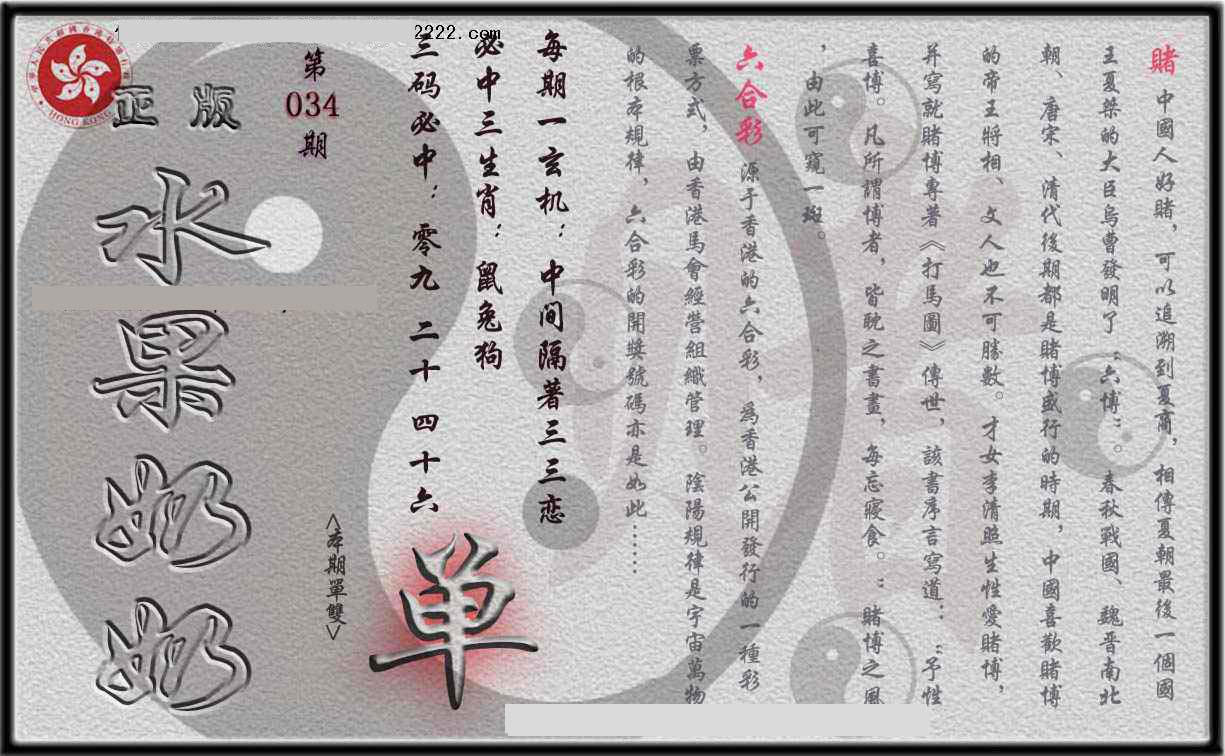 2222.com
HONG KONG
正版
水果奶奶
第
034
期
<本期單雙>
单
每期一玄机：中间隔著三三恋
必中三生肖：鼠兔狗
三码必中：零九 二十 四十六
賭 中國人好賭，可以追溯到夏商，相傳夏朝最後一個國
王夏桀的大臣烏曹發明了“六博”。春秋戰國、魏晋南北
朝、唐宋、清代後期都是賭博盛行的時期，中國喜歡賭博
的帝王將相、文人也不可勝數。才女李清照生性愛賭博，
并寫就賭博專著《打馬圖》傳世，該書序言寫道：“予性
喜博。凡所謂博者，皆耽之書畫，每忘寢食。”賭博之風
，由此可窺一斑。
六合彩 源于香港的六合彩，爲香港公開發行的一種彩
票方式，由香港馬會經營組織管理。陰陽規律是宇宙萬物
的根本規律，六合彩的開獎號碼亦是如此……